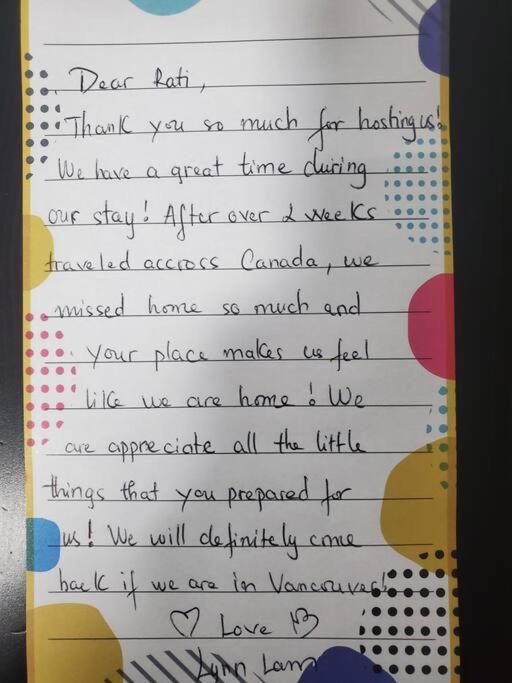 Dear Rati,
Thank you so much for hosting us!
We have a great time during
our stay! After over 2 weeks
traveled accross Canada, we
missed home so much and
your place makes us feel
like we are home! We
are appreciate all the little
things that you prepared for
us! We will definitely come
back if we are in Vancouver!
♡ Love ♡
Lynn Lam